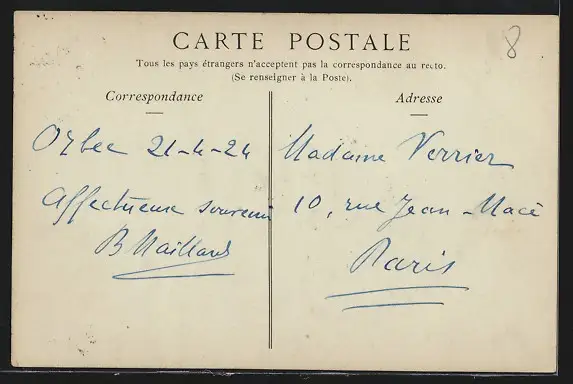 CARTE POSTALE
Tous les pays étrangers n'acceptent pas la correspondance au recto.
(Se renseigner à la Poste).
Correspondance
Adresse
8
Orbec 21-4-24
Affectueux souvenir
B Maillard
Madame Verrier
10, rue Jean-Macé
Paris